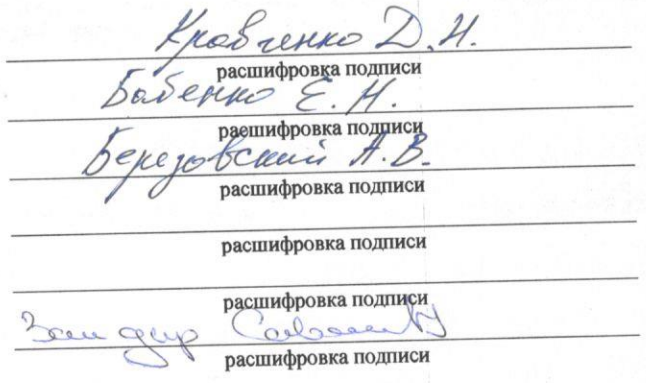 Кравченко Д.Н.
расшифровка подписи
Бабенко Е.Н.
расшифровка подписи
Березовский А.В.
расшифровка подписи
расшифровка подписи
расшифровка подписи
расшифровка подписи